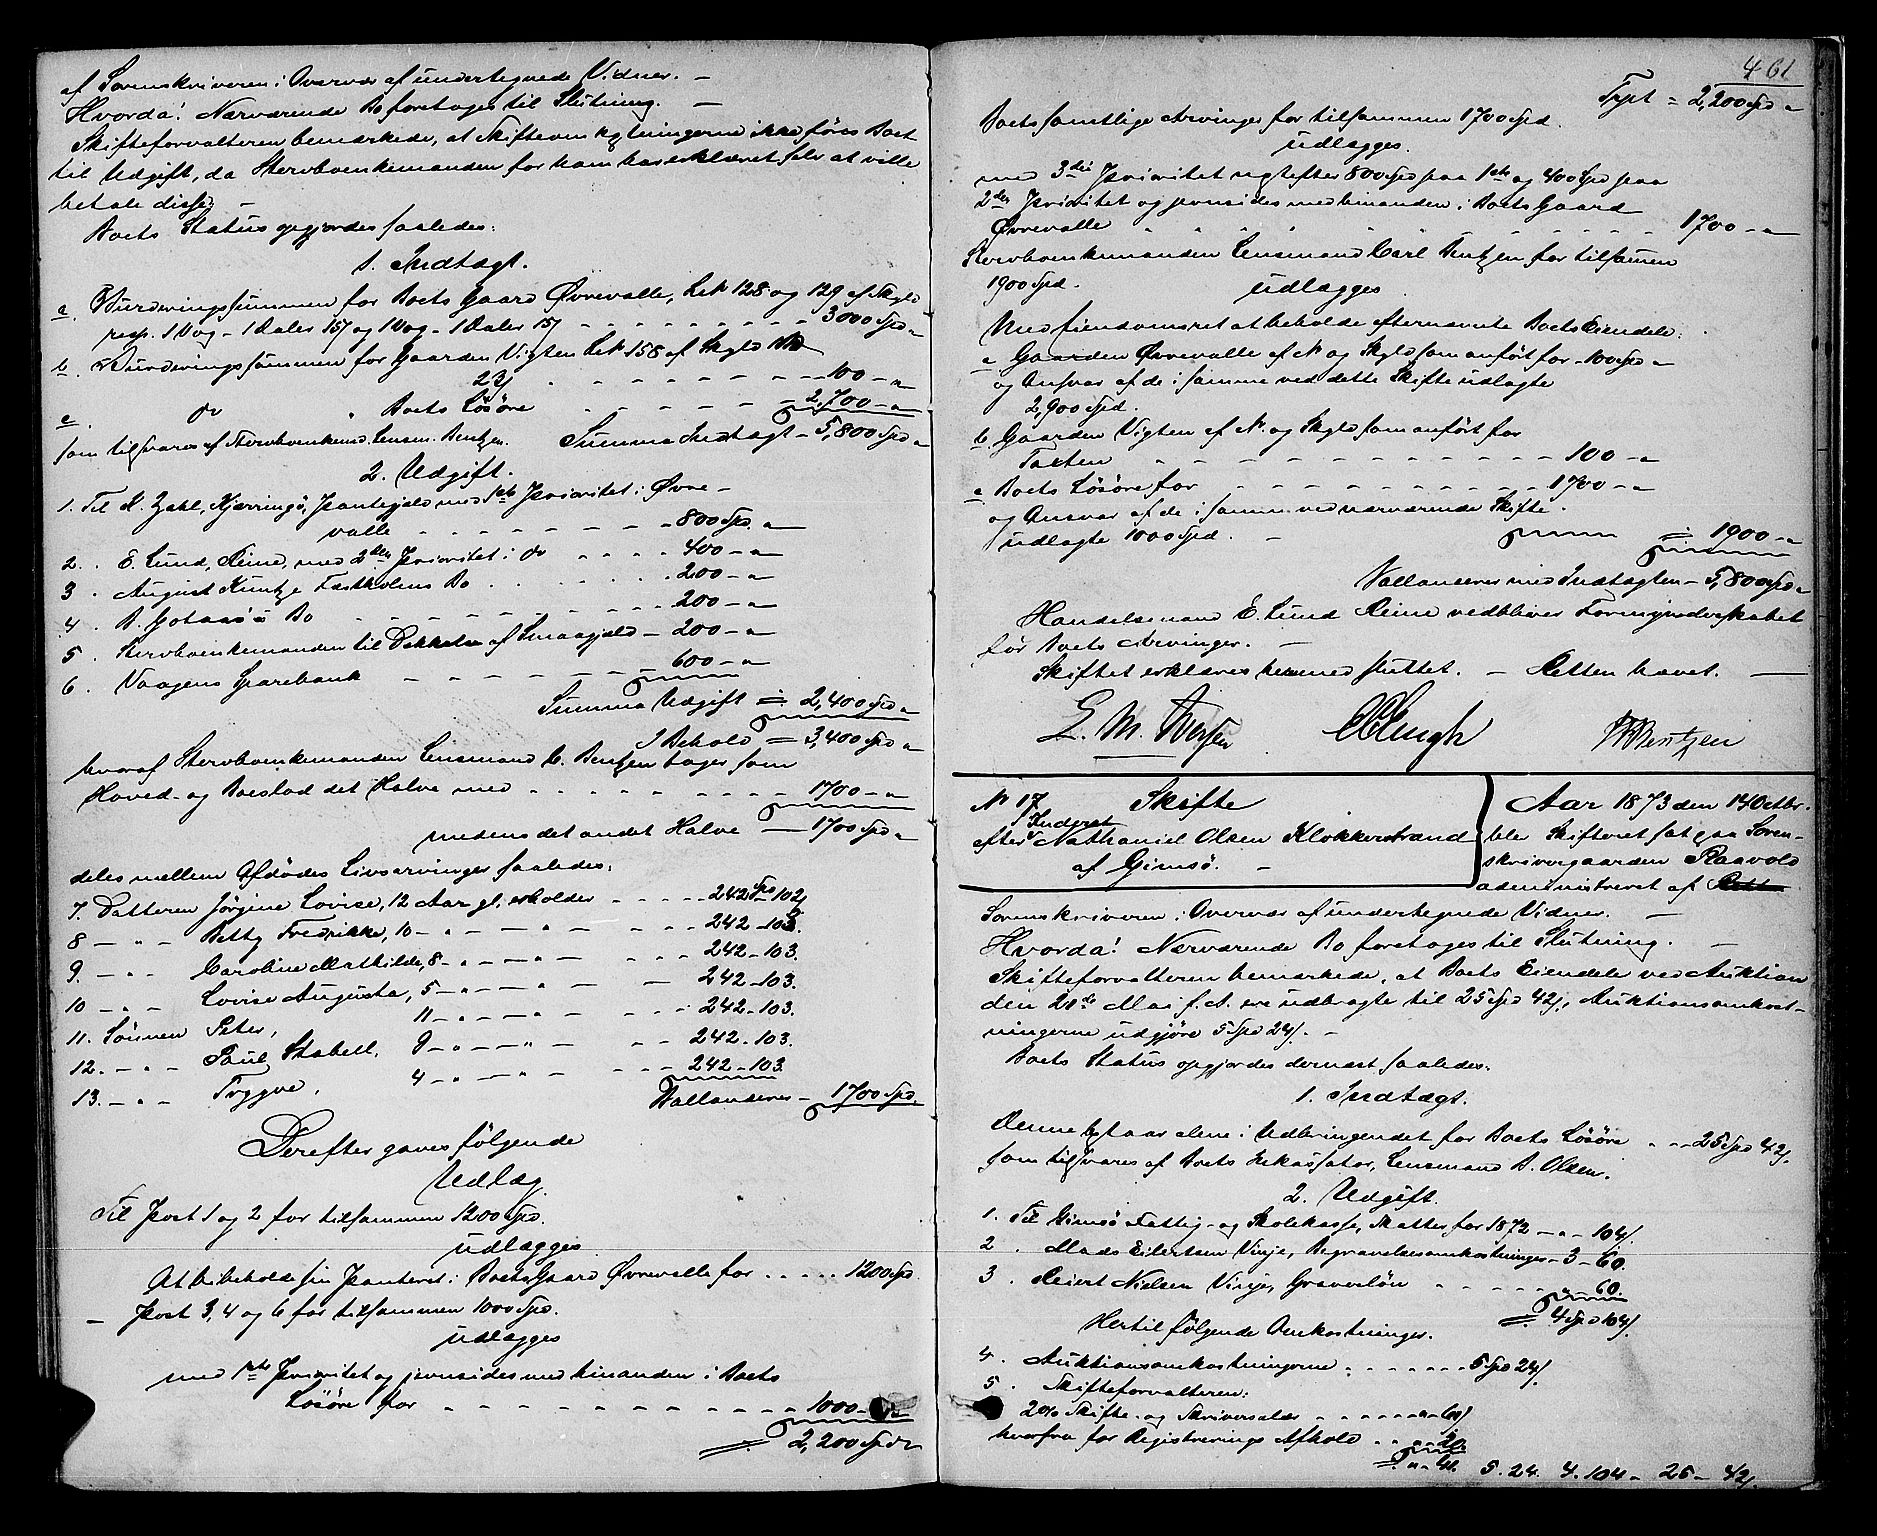 af Sorenskriveren i Overvær af undertegnede Vidner. –
Hvorda! Nærværende Bo foretoges til Slutning. –
Skifteforvalteren bemærkede, at Skifteomkostningerne ikke føres Boet
til Udgift, da Stervboenkemanden for ham har erklæret selv at ville
betale disse. –
Boets Status opgjordes saaledes:
1. Indtægt.
a. Vurderingssummen for Boets Gaard Øvrevalle, Lnr 128 og 129 af Skyld
resp. 1 Vog – 1 Daler 15/ og 1 Vog – 1 Daler 15/ – – – 3000 Spd „
b. Vurderingssummen for Gaarden Vigten Lnr 158 af Skyld
22/ – – – – 100 – „
c. do „ Boets Løsøre – – – – 2,700 – „
som tilsvares af Stervboenkemd. Lensm. Bentzen. Summa Indtægt – 5,800 Spd „
2. Udgift.
1. Til K. Zahl, Kjerringø, Pantegjeld med 1ste Prioritet i Øvre –
valle – – – – 800 Spd. „
2. „ E. Lund, Reine, med 2den Prioritet i do – – – 400 – „
3 . August Kuntze Bo – – – 200 – „
4 . B. Bo – – – 200 – „
5 . Stervboenkemanden til Dækkelse af Smaagjeld – 200 – „
6 . Vaagens Sparebank – – – 600 – „
Summa Udgift = 2,400 Spd „
I Behold = 3,400 Spd „
hvoraf Stervboenkemanden Lensmand C. Bentzen tager som
Hoved- og Boeslod det Halve med – – – 1700 – „
medens det andet Halve – 1700 Spd „
deles mellem Afdødes Livsarvinger saaledes:
7. Datteren Jørgine Lovise, 12 Aar gl. erholder – – 242 Spd 102/
8 – „ – Betty Fredrikke, 10 – „ – „ – 242 – 103.
9. – „ – Caroline Mathilde, 8 – „ – „ – 242 – 103.
10 – „ – Lovise Augusta, 5 – „ – „ – 242 – 103.
11. Sønnen Peter, 11 – „ – „ – 242 – 103.
12. – „ – Paul Stabell, 9 – „ – „ – 242 – 103.
13. – „ – Trygve, 4 – „ – „ – 242 – 103.
Ballancerer – 1700 Spd.
Derefter gaves følgende
Udlæg
Til Post 1 og 2 for tilsammen 1200 Spd.
udlægges
At bibeholde sin Panteret i Boets Gaard Øvrevalle for . . . . 1200 Spd.
– Post 3, 4 og 6 for tilsammen 1000 Spd.
udlægges
med 1ste Prioritet og jevnsides med hinanden i Boets
Løsøre for – – – – 1000 –
= 2,200 Spd „
461
Trpt = 2,200 Spd „
Boets samtlige Arvinger for tilsammen 1700 Spd.
udlægges.
med 3die Prioritet næst efter 800 Spd paa 1ste og 400 Spd paa
2den Prioritet og jevnsides med hinanden i Boets Gaard
Øvrevalle – – – – 1700 – „
Stervboenkemanden Lensmand Carl Bentzen for tilsammen
1900 Spd. udlægges
Med Eiendomsret at beholde efternævnte Boets Eiendele:
a Gaarden Øvrevalle af N og Skyld som anført for – 100 Spd „
og Ansvar af de i samme ved dette Skifte udlagte
2,900 Spd.
b. Gaarden Vigten af N. og Skyld som anført for
Taxten – – – – 100 – „
c Boets Løsøre for – – – – 1700 – „
og Ansvar af de i samme ved nærværende Skifte
udlagte 1000 Spd. – = 1900 – „
Ballancerer med Indtægten – 5,800 Spd „
Handelsmand E. Lund Reine vedbliver Formynderskabet
for Boets Arvinger. –
Skiftet erklæres hermed sluttet. – Retten hævet. –
E. M. Iversen Bentzen
N 17 Skifte
Inderst
efter Nathaniel Olsen Klokkerstrand
af Gimsø. –
Aar 1873 den 14 Octbr.
blev Skifteret sat paa Soren-
skrivergaarden Raavold
administreret af
Sorenskriveren i Overvær af undertegnede Vidner. –
Hvorda! Nærværende Bo foretoges til Slutning. –
Skifteforvalteren bemærkede, at Boets Eiendele ved Auktion
den 20de Mai f. A. ere udbragte til 25 Spd 42/, Auktionsomkost-
ningerne udgjøre 5 Spd 24/. –
Boets Status opgjordes dernæst saaledes:
1. Indtægt.
Denne bestaar alene i Udbringendet for Boets Løsøre . . . 25 Spd 42/.
som tilsvares af Boets Inkassator, Lensmand B. Olsen.
2. Udgift.
1. Til Gimsø Fattig- og Skolekasse, Skatter for 1872 – „ – 104/.
2 . Mads Eilertsen Vinje, Begravelsesomkostninger – 3 – 60.
3 . Reiert Nielsen Vinje, Graverløn – – – 60.
= 4 Spd 104/.
Hertil følgende Omkostninger.
4 . Auktionsomkostningerne . . . . . 5 Spd 24/.
5 . Skifteforvalteren:
2% Skifte- og Skriversalær – – – „ – 60/
hvorfra for Registrerings Afhold . . „ – 20
= „ – 40. 5. 24. 4. 104 – 25 – 42/.